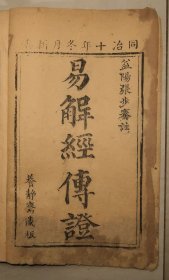 同治十年冬月新
益陽張步騫註
易解經傳證
養靜齋藏板